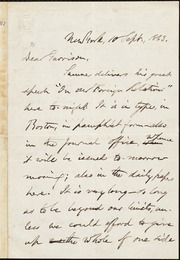 New York, 10 Sept. 1863.
Dear Garrison,
Sumner delivers his great
speech "On our Foreign Relations"
here to night. It is in type, in
Boston, in pamphlet form also
in the Journal office, whence
it will be issued to-morrow
morning; also in the daily papers
here. It is very long—so long
as to be beyond our limits, un-
less we could afford to give
up the whole of one side